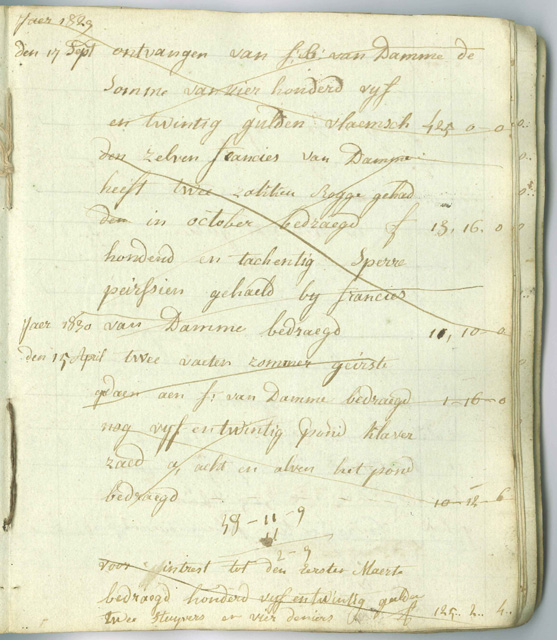 Jaer 1829
den 17 Sept ontvangen van f: B: van Damme de
Somme van vier honderd vyf
en twintig gulden vlaemsch 425 0 0
den zelven francies van Damme
heeft twee zakken Rogge gehad
den in october bedraegd f 13, 16. 0
honderd en tachentig Sperre
peirssien gehaeld by francies
Jaer 1830 van Damme bedraegd 11, 10 0
den 15 April twee vaeten zommer geirste
gdaen aen f: van Damme bedraegd 1-16-0
nog vyf en twintig pond klaver
zaed a acht en alven het pond
bedraegd 10-12-6
38-11-9
11
2-9
voor intrest tot den eersten Maert
bedraegd honderd vyf en twintig gulde
twee stuyvers en vier deniers f 125.. 2.. 4..